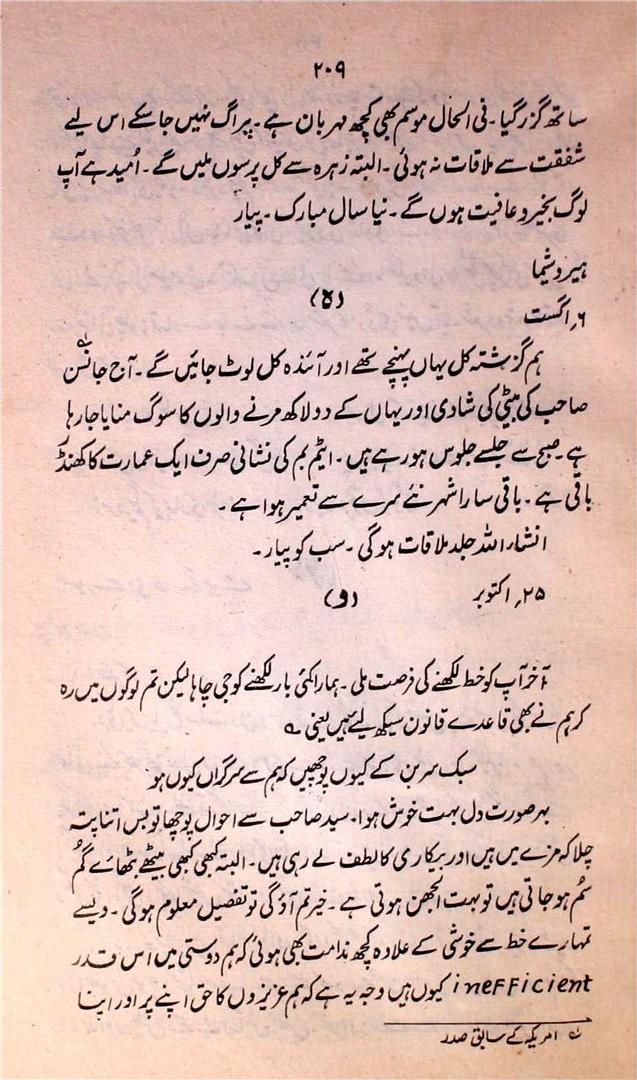 ۲۰۹
ساتھ گزر گیا۔ فی الحال موسم بھی کچھ مہربان ہے۔ پراگ نہیں جا سکے اس لیے
شفقت سے ملاقات نہ ہوئی۔ البتہ زہرہ سے کل پرسوں ملیں گے۔ اُمید ہے آپ
لوگ بخیر و عافیت ہوں گے۔ نیا سال مبارک۔ پیار
ہیروشیما
(ہ)
۶ اگست
ہم گزشتہ کل یہاں پہنچے تھے اور آئندہ کل لوٹ جائیں گے۔ آج جانسن
صاحب کی بیٹی کی شادی اور یہاں کے دو لاکھ مرنے والوں کا سوگ منایا جا رہا
ہے صبح سے جلسے جلوس ہو رہے ہیں۔ ایٹم بم کی نشانی صرف ایک عمارت کا کھنڈر
باقی ہے۔ باقی سارا شہر نئے سرے سے تعمیر ہوا ہے۔
انشاء اللہ جلد ملاقات ہو گی۔ سب کو پیار۔
۲۵ اکتوبر (و)
آخر آپ کو خط لکھنے کی فرصت ملی۔ ہمارا کئی بار لکھنے کو جی چاہا لیکن تم لوگوں میں رہ
کر ہم نے بھی قاعدے قانون سیکھ لیے ہیں یعنی ؎
سبک سر بن کے کیوں پوچھیں کہ ہم سے سرگراں کیوں ہو
بہر صورت دل بہت خوش ہوا۔ سید صاحب سے احوال پوچھا تو بس اتنا پتہ
چلا کہ مزے میں ہیں اور بیکاری کا لطف لے رہی ہیں۔ البتہ کبھی کبھی بیٹھے بٹھائے گُم
سُم ہو جاتی ہیں تو بہت الجھن ہوتی ہے۔ خیر تم آؤ گی تو تفصیل معلوم ہو گی۔ ویسے
تمہارے خط سے خوشی کے علاوہ کچھ ندامت بھی ہوئی کہ ہم دوستی میں اس قدر
inefficient کیوں ہیں وجہ یہ ہے کہ ہم عزیزوں کا حق اپنے پر اور اپنا
امریکہ کے سابق صدر